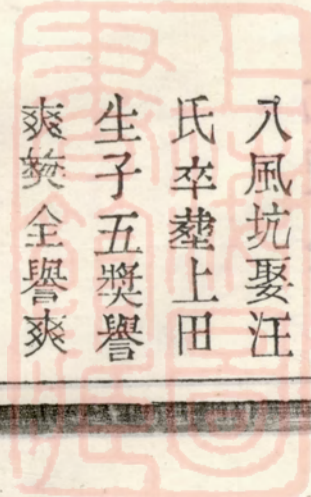 八風坑娶汪
氏卒塟上田
生子五奬譽
爽㷼全譽爽